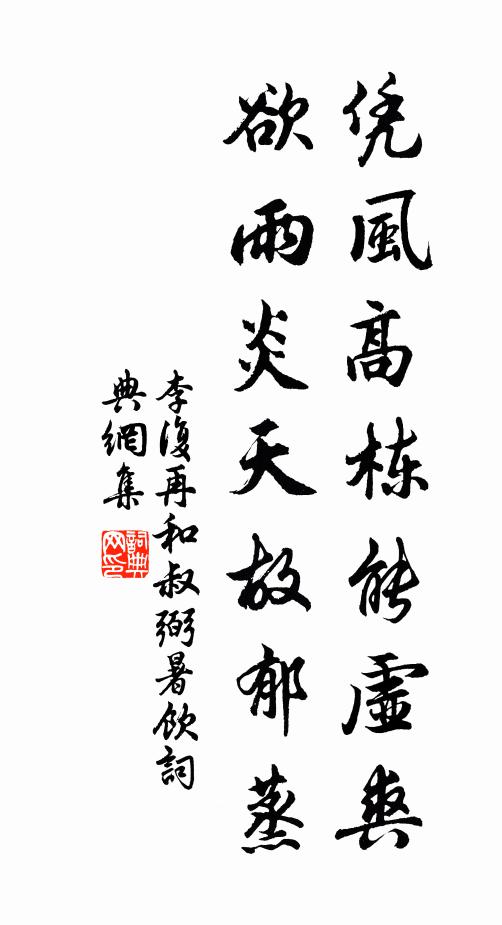 凭風高栋能虛爽
欲雨炎天故郁蒸
李復再和叔弼暑飲詞
典網集
詞典
网印